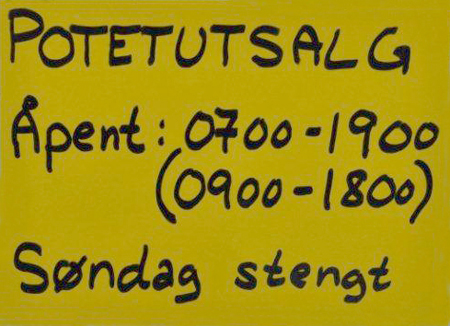 POTETUTSALG
Åpent: 0700-1900
(0900-1800)
Søndag stengt